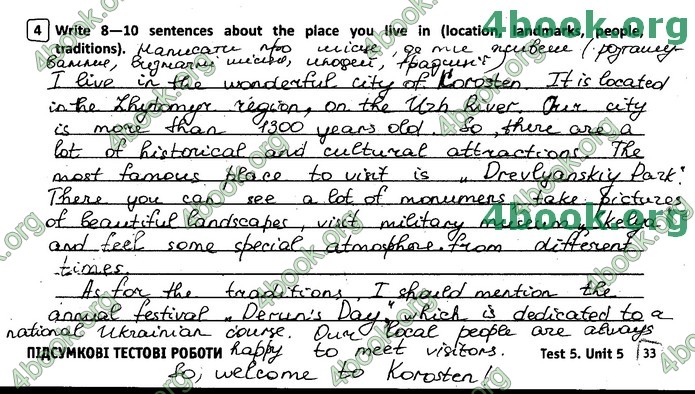 4 Write 8—10 sentences about the place you live in (location, landmarks, people,
traditions). Написати про місце, де ти живеш (розташу-
вання, визначні місця, людей, традиції)
I live in the wonderful city of Korosten. It is located
in the Zhytomyr region, on the Uzh River. Our city
is more than 1300 years old. So, there are a
lot of historical and cultural attractions. The
most famous place to visit is „Drevlyanskiy Park".
There you can see a lot of monumens, take pictures
of beautiful landscapes, visit military museum
and feel some special atmosphere from different
times.
As for the traditions, I should mention the
annual festival „Derun's Day", which is dedicated to a
national Ukrainian course. Our local people are always
happy to meet visitors.
So, welcome to Korosten!
ПІДСУМКОВІ ТЕСТОВІ РОБОТИ
Test 5. Unit 5 33
4book.org
4book.org